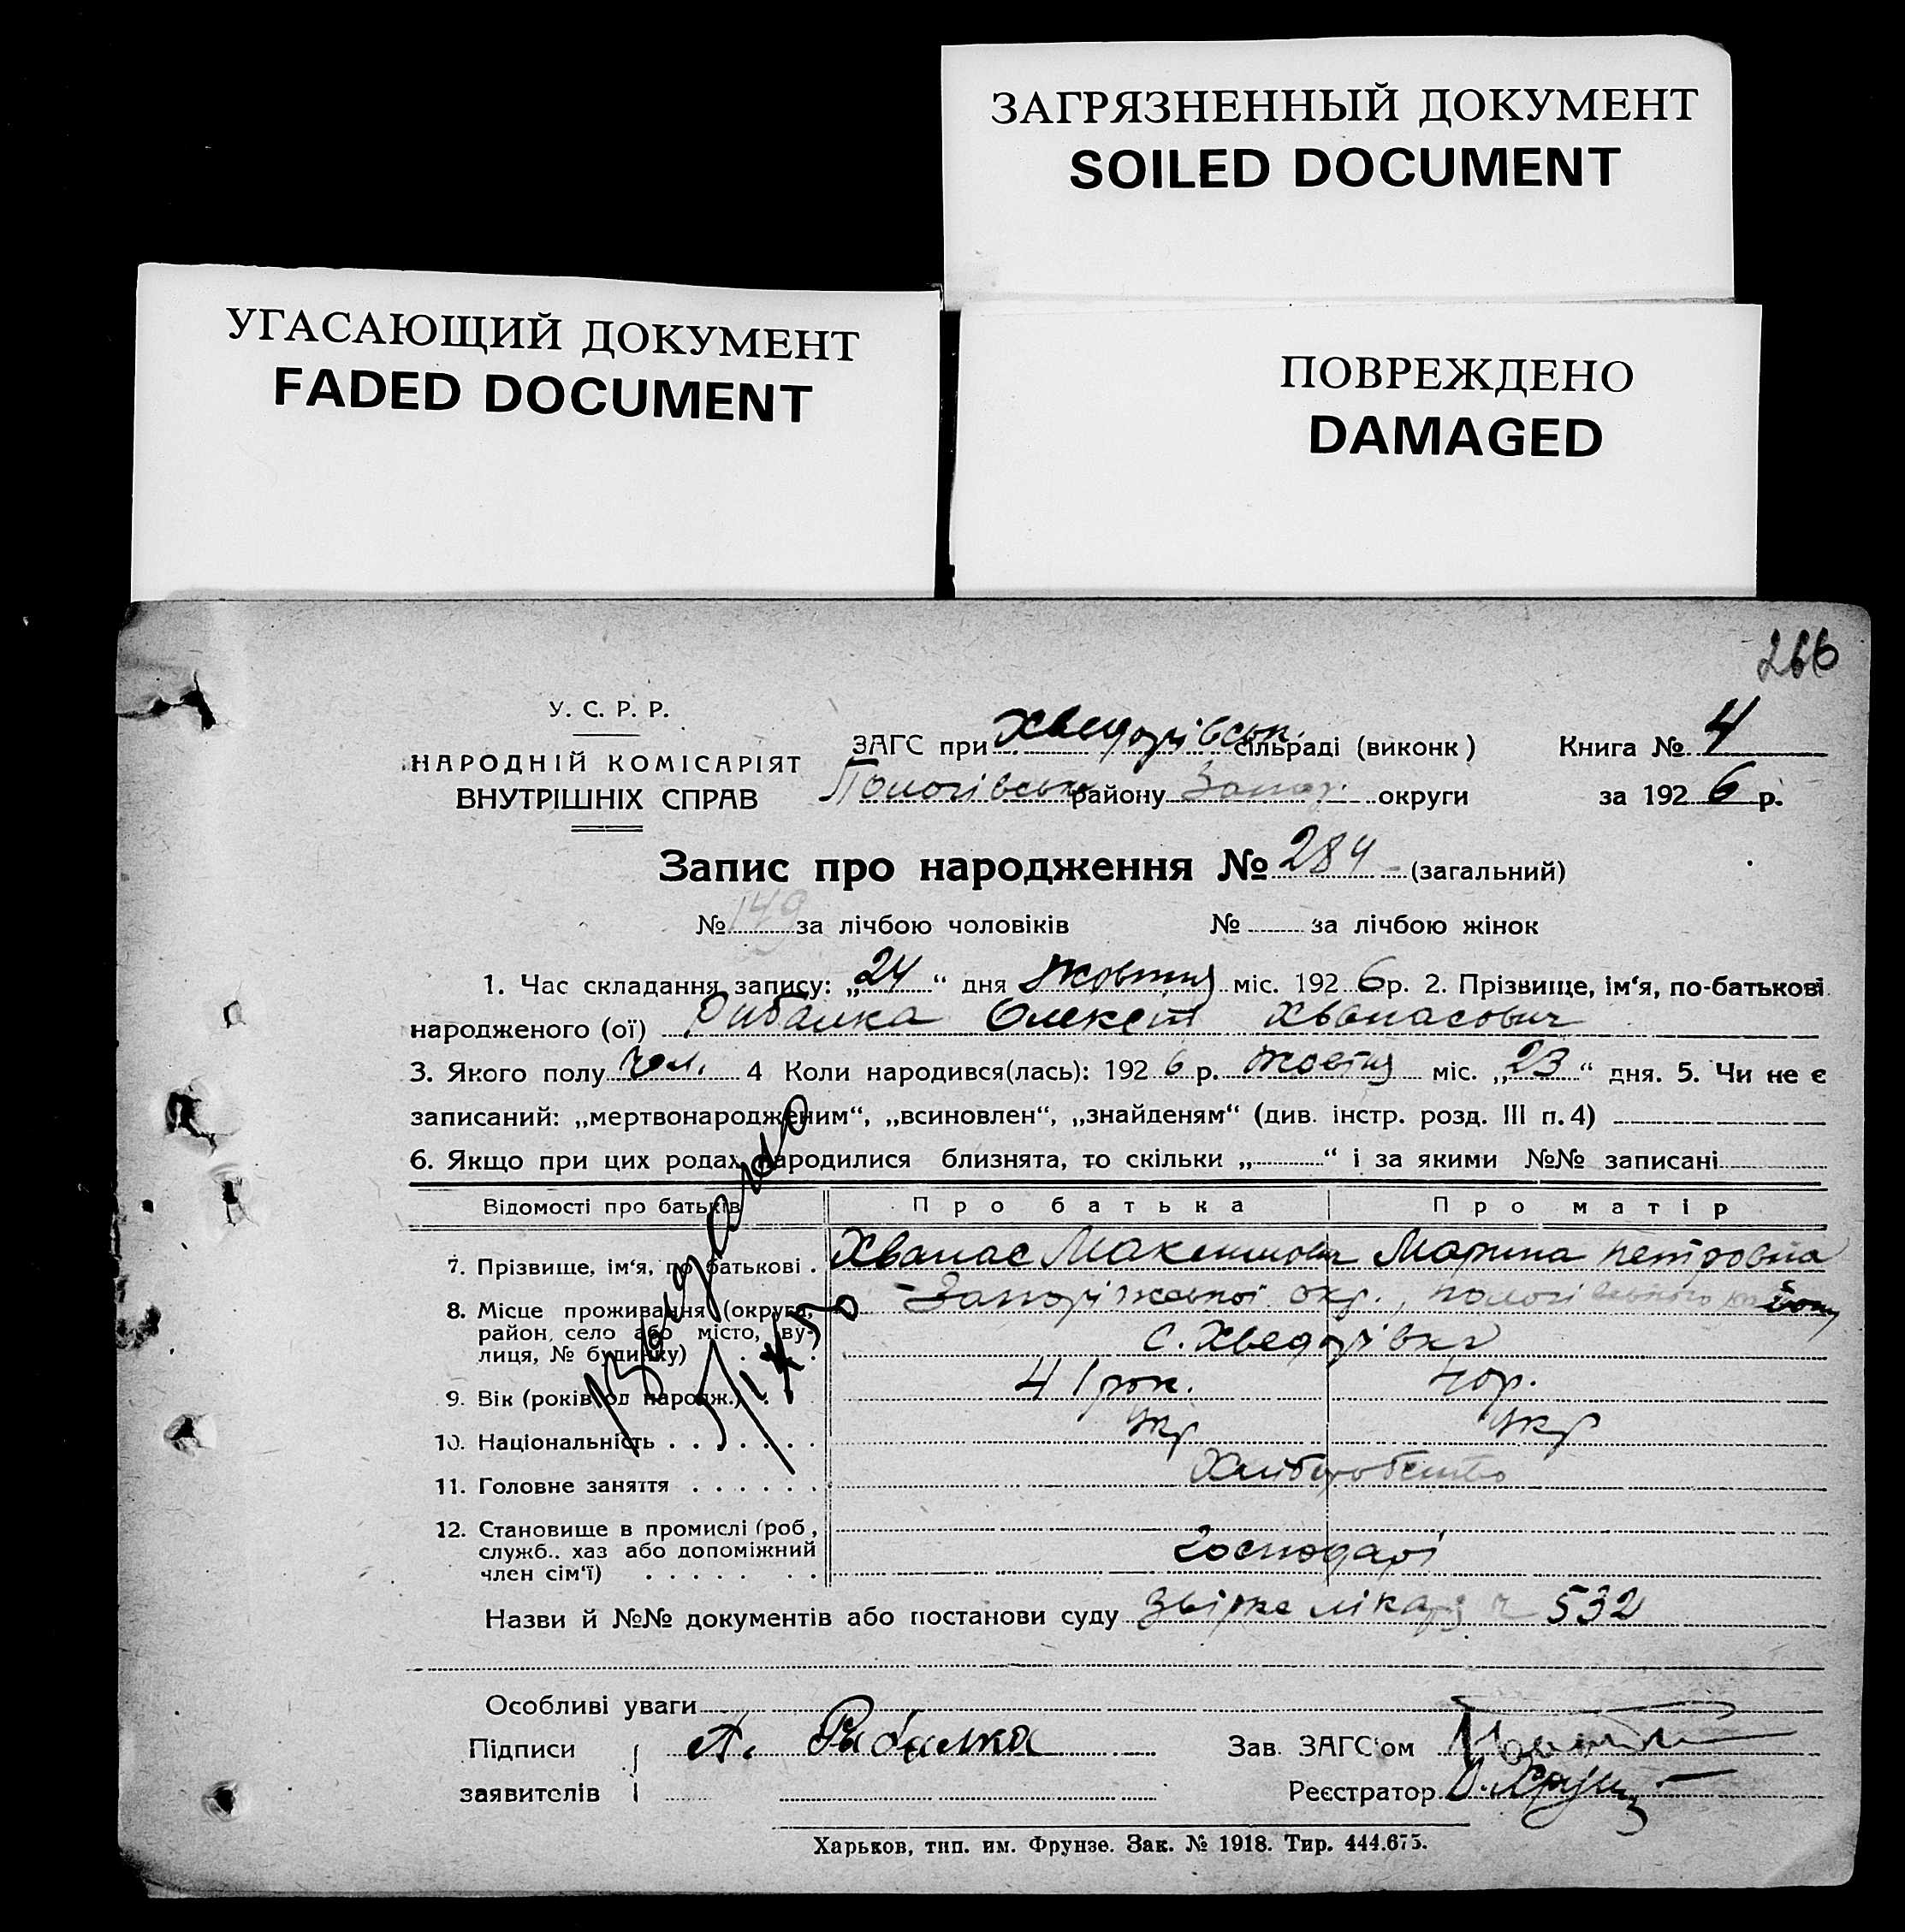 ЗАГРЯЗНЕННЫЙ ДОКУМЕНТ
SOILED DOCUMENT
УГАСАЮЩИЙ ДОКУМЕНТ
FADED DOCUMENT
ПОВРЕЖДЕНО
DAMAGED
266
У. С. Р. Р.
НАРОДНІЙ КОМІСАРІЯТ
ВНУТРІШНІХ СПРАВ
ЗАГС при Хведорівськ. сільраді (виконк) Книга № 4
Пологівськ району Запор. округи за 1926 р.
Запис про народження № 284 (загальний)
№ 149 за лічбою чоловіків № за лічбою жінок
1. Час складання запису: „24“ дня жовтня міс. 1926 р. 2. Прізвище, ім‘я, по-батькові
народженого (ої) Рибалка Олексій Хванасович
3. Якого полу чол. 4 Коли народився(лась): 1926 р. жовтня міс. „23“ дня. 5. Чи не є
записаний: „мертвонародженим“, „всиновлен“, „знайденям“ (див. інстр. розд. III п. 4)
6. Якщо при цих родах народилися близнята, то скільки „ “ і за якими №№ записані
Відомості про батьків Про батька Про матір
7. Прізвище, ім‘я, по батькові . Хванас Максимович Марина Петровна
8. Місце проживання (округа, Запоріжської окр., пологівського району
район, село або місто, ву-
лиця, № будинку) . . . с. Хведорівка
9. Вік (років од народж.) . 41 рок. 40 р.
10. Національність . . . . . . . Укр Укр
11. Головне заняття . . . . . . Хліборобство
12. Становище в промислі (роб,
служб.. хаз або допоміжний Господарі
член сім‘ї) . . . . . . .
Назви й №№ документів або постанови суду Звірка лікаря ч 532
Особливі уваги
Підписи А. Рибалка Зав. ЗАГС‘ом
заявителів Реєстратор
Харьков, тип. им. Фрунзе. Зак. № 1918. Тир. 444.675.